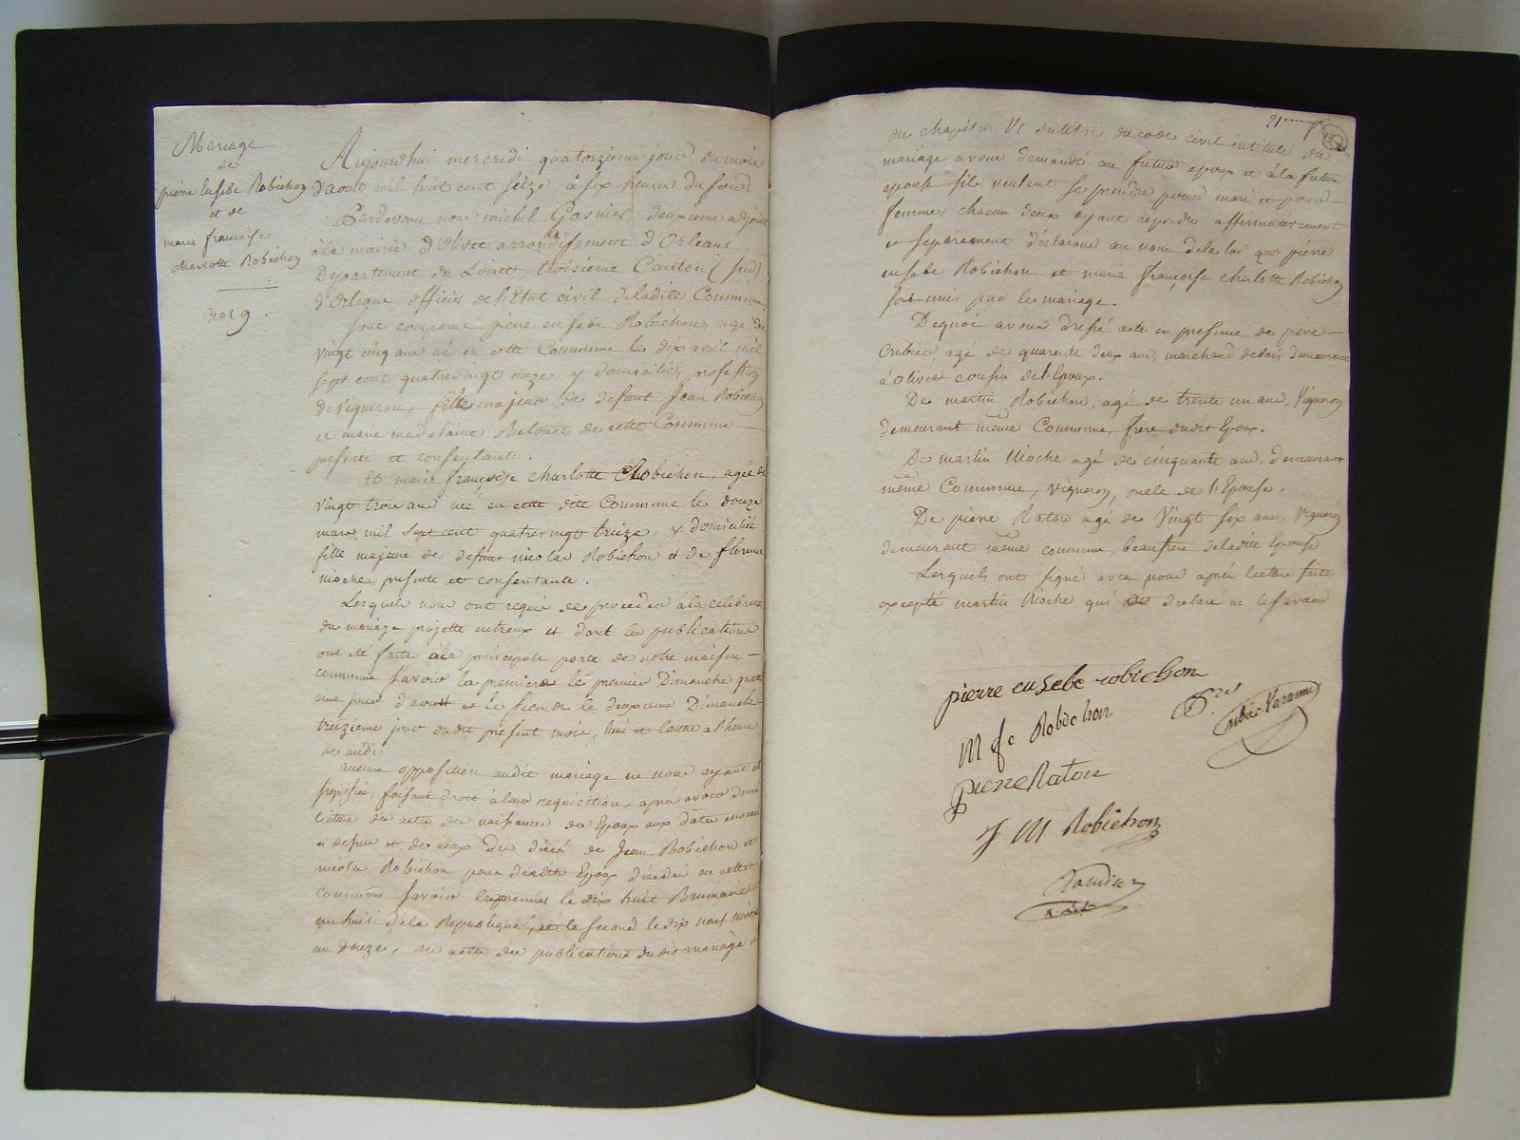 Mariage
de
pierre Eusebe Robichon
et de
marie francoise
charlotte Robichon
no 19.
Aujourd'hui mercredi quatorzieme jour du mois
d'aout mil huit cent seize à six heures du soir
Pardevant nous michel Gasnier deuxieme adjoint
à la mairie d'Olivet arrondissement d'Orleans
Departement du Loiret troisieme Canton (sud)
d'Orleans officier de l'Etat civil de ladite Commune
Sont comparus pierre eusebe Robichon, agé de
vingt cinq ans né en cette Commune le dix avril mil
sept cent quatre vingt onze y domicilié, profession
de vigneron, fils majeur de defunt Jean Robichon
et marie madelaine de cette Commune
presente et consentante.
Et marie françoise charlotte Robichon, agée de
vingt trois ans née en cette dite Commune le douze
mars mil sept cent quatre vingt treize, y domiciliée
fille majeure de defunt nicolas Robichon et de
presente et consentante.
Lesquels nous ont requis de proceder à la celebration
du mariage projetté entreux et dont les publications
ont été faites à la principale porte de notre maison
commune savoir la premiere le premier Dimanche
jour d'aoust et la seconde le deuxieme Dimanche
jour dudit present mois, l'une et l'autre a l'heure
de midi.
aucune opposition audit mariage ne nous ayant été
faisant droit à leur requisition, après avoir donné
lecture des actes de naissances des Epoux aux dates
et de ceux du décès de Jean Robichon et
nicolas Robichon peres desdits Epoux décédés en cette
commune savoir le premier le dix huit Brumaire
an huit de la Republique, et le second le dix neuf
an douze, des actes des publications dudit mariage
21
du chapitre VI du titre du code civil intitulé du
mariage avons demandé au futur epoux et à la future
epouse s'ils veulent se prendre pour mari et pour
femme, chacun deux ayant repondu affirmativement
et separement declarons au nom de la loi que pierre
eusebe Robichon et marie françoise charlotte Robichon
sont unis par le mariage.
De quoi avons dressé acte en presence de
agé de quarante deux ans, marchand de bois demeurant
à Olivet cousin de l'Epoux.
De martin Robichon, agé de trente un ans, Vigneron
demeurant même Commune, frere dudit Epoux.
De martin Rioche agé de cinquante ans, demeurant
même Commune, vigneron, oncle de l'Epouse.
De pierre Raton agé de Vingt six ans, Vigneron
demeurant même commune, beaufrere de ladite Epouse
Lesquels ont signé avec nous après lecture faite
excepté martin Rioche qui a declaré ne le savoir
pierre eusebe robichon
M f c Robichon
pierre Raton
J M Robichon